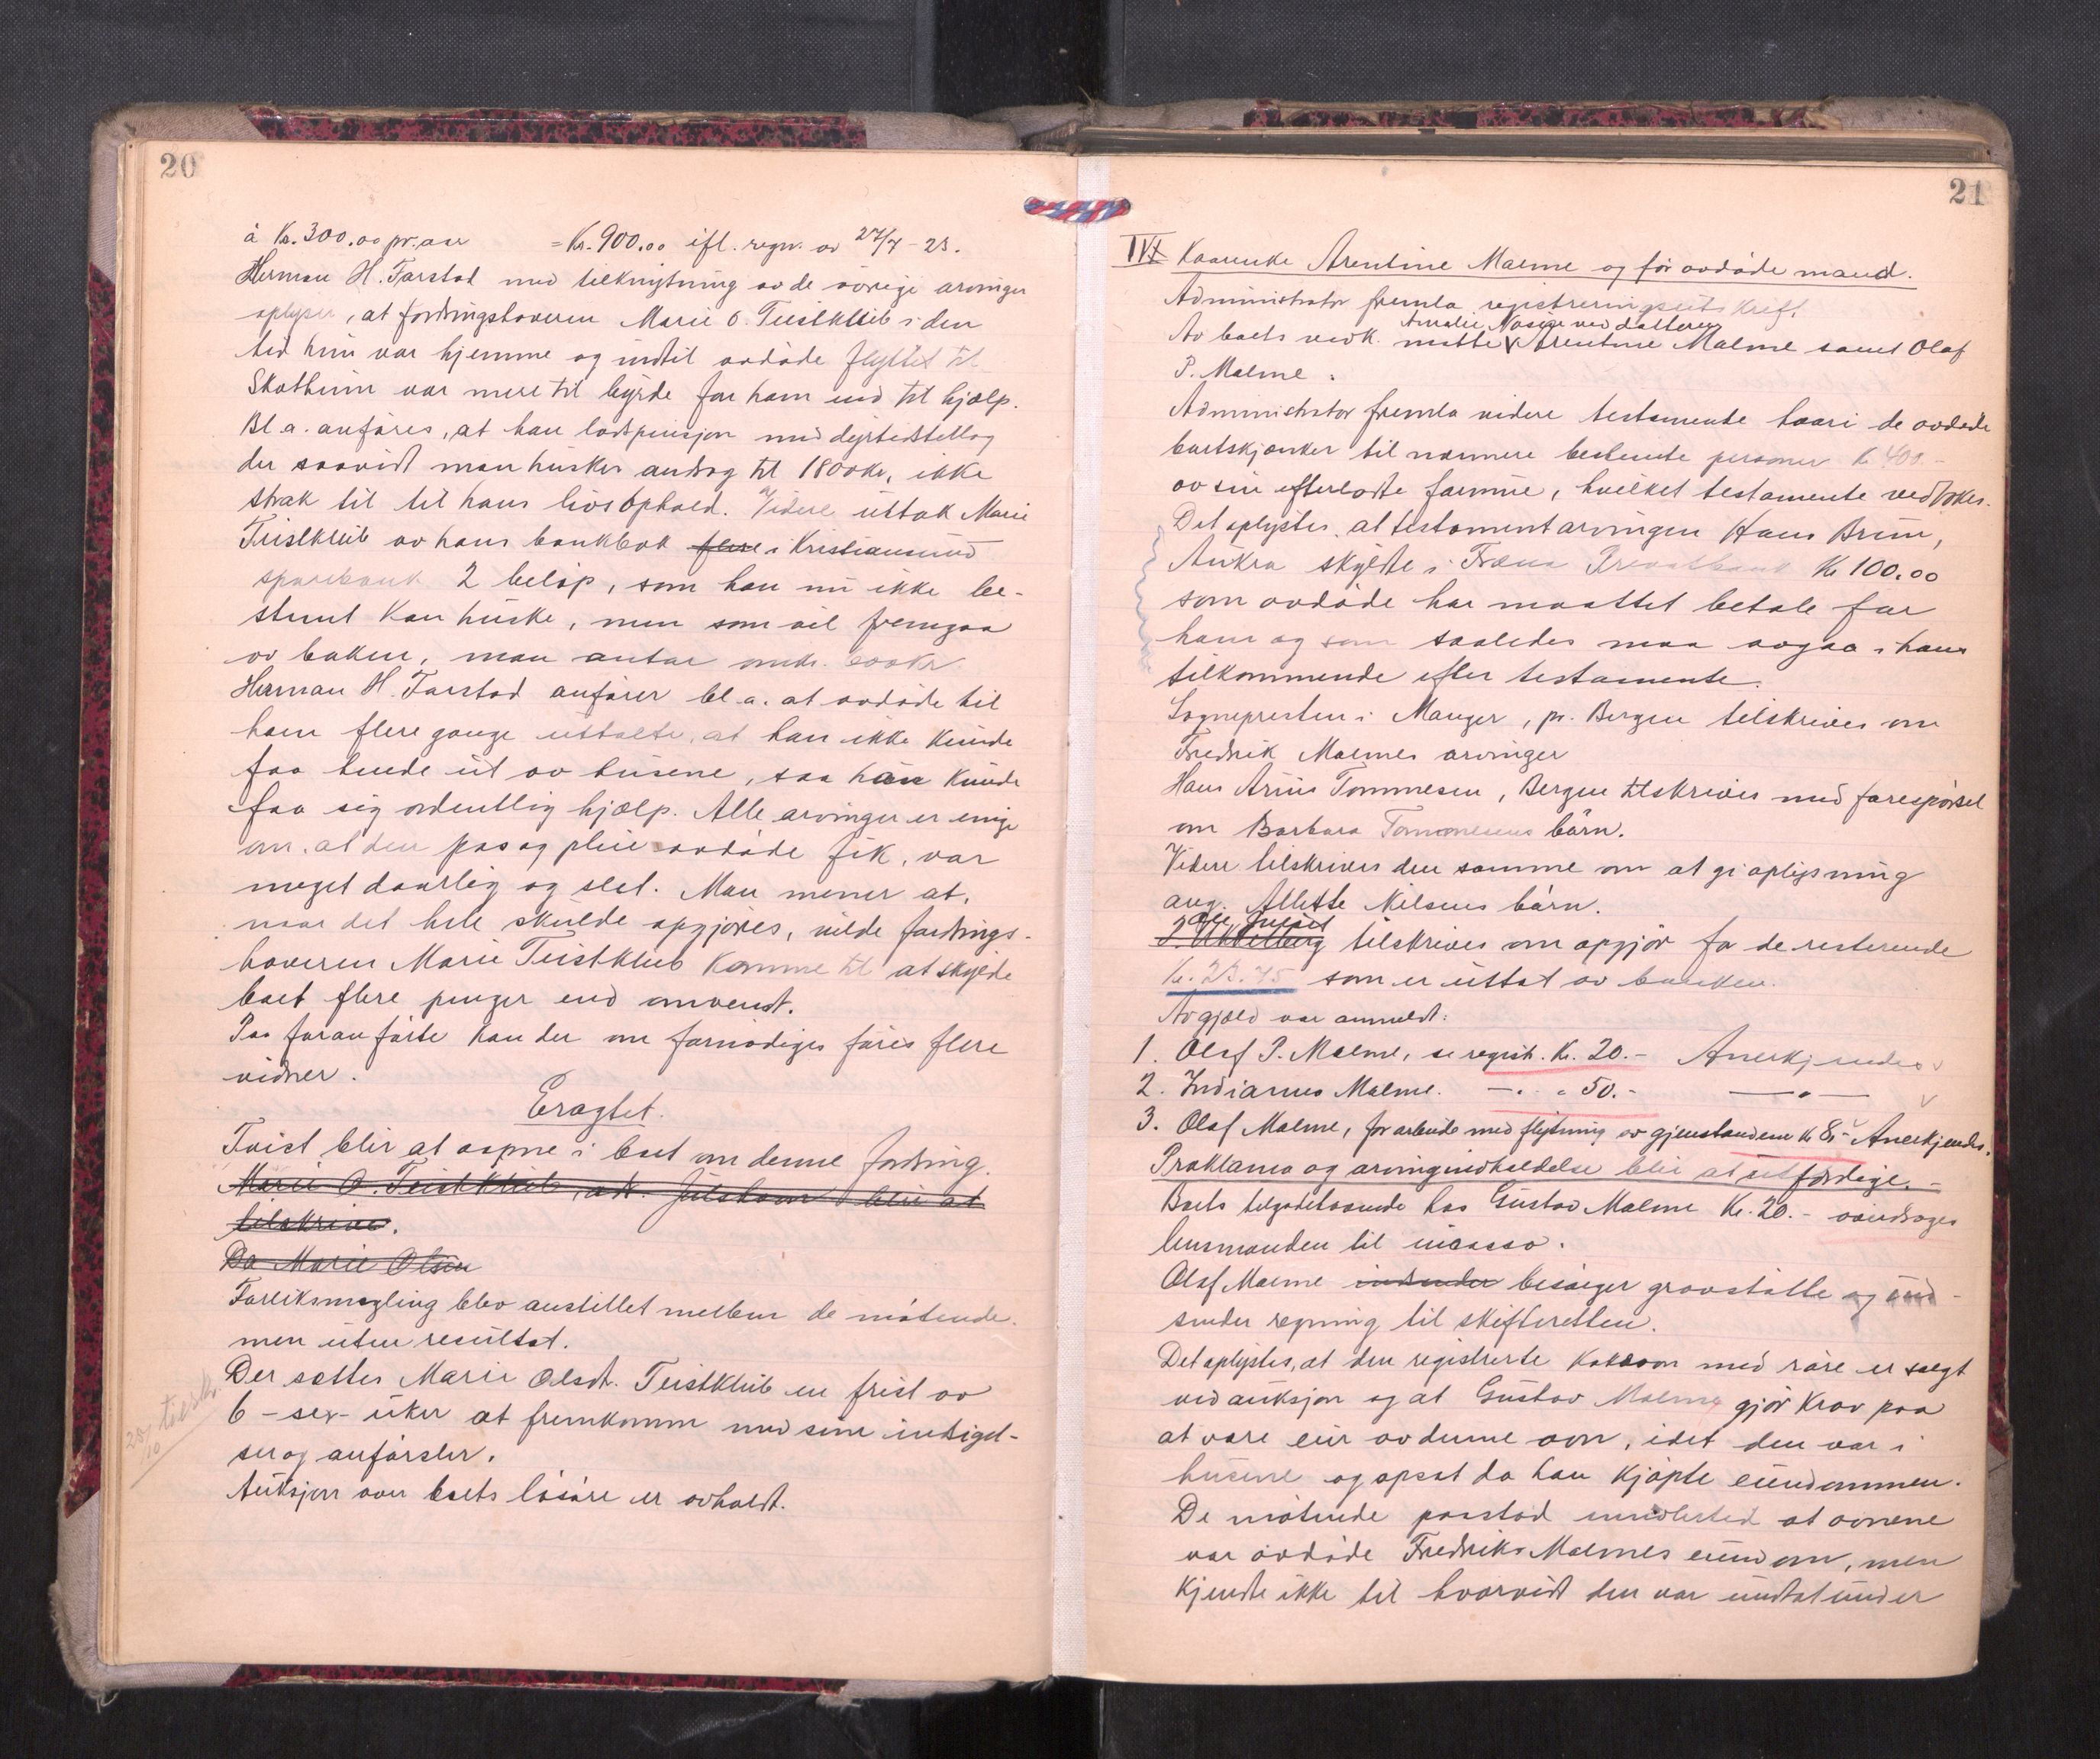 20
à Kr. 300.00 pr. aar = Kr. 900.00 ifl. regn. av 27/7 - 23.
Herman H. Farstad med tilknytning av de øvrige arvinger
oplyser, at fordringshaveren Marie O. Teistklub i den
tid hun var hjemme og indtil avdøde flyttet til
Skotheim var mere til byrde for ham end til hjælp.
Bl. a. anføres, at han lodspensjon med dyrtidstillæg
der saavidt man husker androg til 1800 kr, ikke
strak til til hans livsophold. Videre uttok Marie
Teistklub av hans bankbok flere i Kristiansund
sparebank 2 beløp, som han nu ikke be-
stemt kan huske, men som vil fremgaa
av boken, man antar omkr.
Herman H. Farstad anfører bl. a. at avdøde til
ham flere gange uttalte, at han ikke kunde
faa hende ut av husene, saa han kunde
faa sig ordentlig hjælp. Alle arvinger er enige
om, at den pas og pleie avdøde fik, var
meget daarlig og slet. Man mener at,
naar det hele skulde opgjøres, vilde fordrings-
haveren Marie Teistklub komme til at skylde
boet flere penger end omvendt.
Paa foranførte kan der om fornødiges føres flere
vidner.
Eragtet.
Tvist blir at aapne i boet om denne fordring.
Marie O. Teistklub, adr. Julshavn blir at
tilskrive.
Da Marie Olsen
Forliksmegling blev anstillet mellem de møtende.
men uten resultat.
Der settes Marie Olsdt. Teistklub en frist av
6 - sex - uker at fremkomme med sine indsigel-
ser og anførsler.
Auksjon over boets løsøre er avholdt.
tilskr.
28/10
21
IVt Kaarenke Arentine Malme og før avdøde mand.
Administrator fremla registreringsutskrift.
Amalie Nasige ved datteren
Av boets vedk. møtte Arentine Malme samt Olaf
P. Malme.
Administrator fremla videre testamente hvori de avdøde
bortskjænker til nærmere bestemte personer Kr 400.-
av sin efterladte formue, hvilket testamente vedtokes.
Det oplystes, at testamentarvingen Hans Brun,
Aukra skyldte i Fræna Privatbank Kr 100.00
som avdøde har maattet betale for
ham og som saaledes maa avgaa i hans
tilkommende efter testamente.
Sognepresten i Manger, pr. Bergen tilskrives om
Fredrik Malmes arvinger
Hans Arius Tommesen, Bergen tilskrives med forespørsel
om Barbara Tommesens børn.
Videre tilskrives den samme om at gi oplysning
ang. Allette Nilsens børn.
Ole Julset
tilskrives om opgjør for de resterende
Kr. 23.75 som er uttat av banken.
Av gjæld var anmeldt:
1. Olaf P. Malme, se regist. Kr. 20.- Anerkjendes
2. Indianus Malme. — . - 50.- — " —
3. Olaf Malme, for arbeide med flytning av gjenstandene Kr 8.- Anerkjendes.
Proklama og arvingindkaldelse blir at utfærdige.-
Boets tilgodehavende hos Gustav Malme Kr. 20.- overdrages
lensmanden til incasso.
Olaf Malme indsender besørger gravstøtte og ind-
sender regning til skifteretten.
Det oplystes, at den registrerte kakovn med røre er solgt
ved auksjon og at Gustav Malme gjør krav paa
at være eier av denne ovn, idet den var i
husene og opsat da han kjøpte eiendommen.
De møtende paastod imidlertid at ovnene
var avdøde Fredrik Malmes eiendom, men
kjendte ikke til hvorvidt den var undtat under